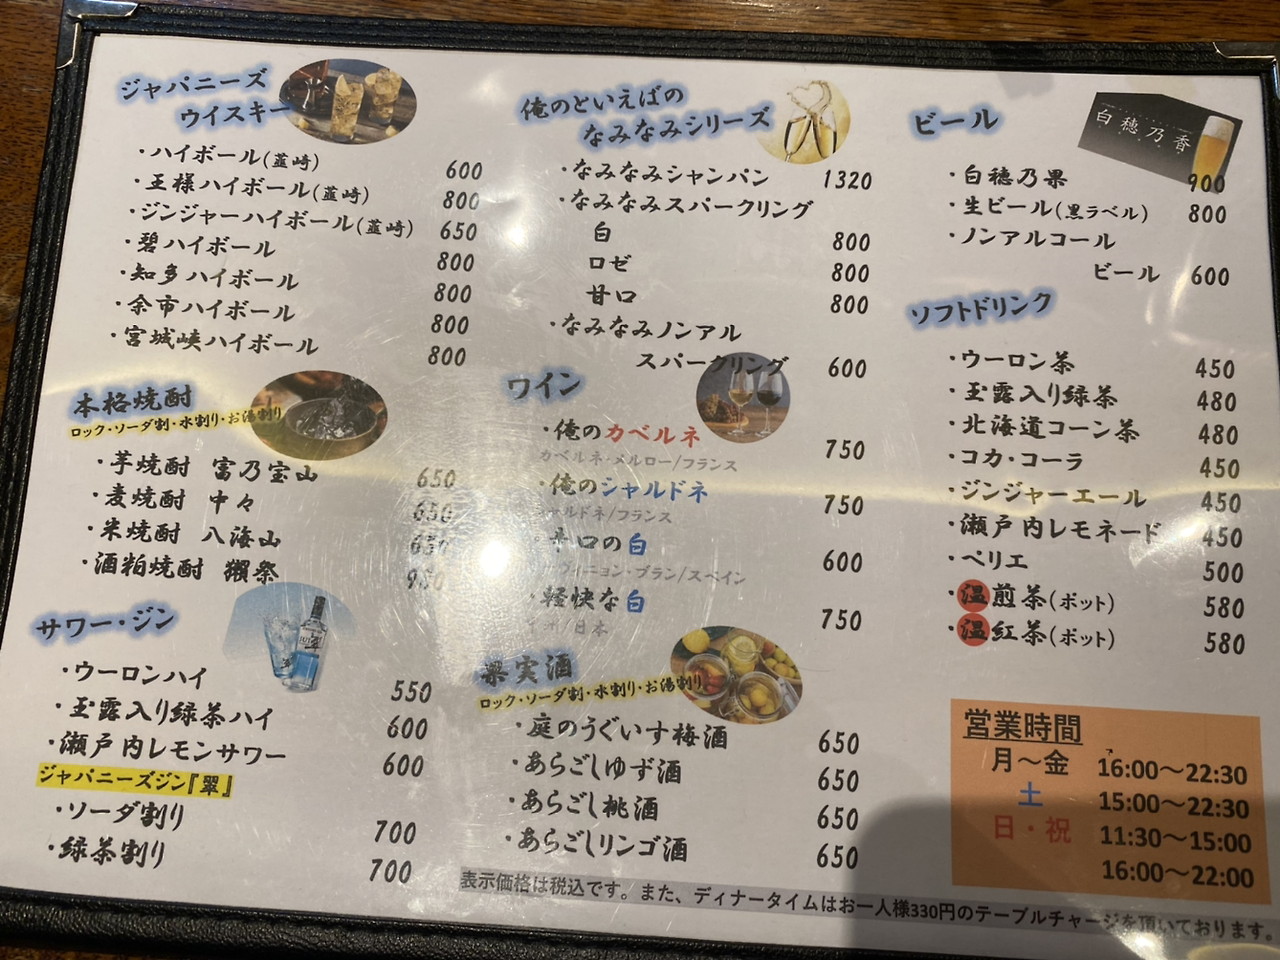 ジャパニーズ
ウイスキー
・ハイボール(韮崎) 600
・王様ハイボール(韮崎) 800
・ジンジャーハイボール(韮崎) 650
・碧ハイボール 800
・知多ハイボール 800
・余市ハイボール 800
・宮城峡ハイボール 800
本格焼酎
ロック・ソーダ割・水割り・お湯割り
・芋焼酎 富乃宝山 650
・麦焼酎 中々 650
・米焼酎 八海山 650
・酒粕焼酎 獺祭 950
サワー・ジン
・ウーロンハイ 550
・玉露入り緑茶ハイ 600
・瀬戸内レモンサワー 600
ジャパニーズジン『翠』
・ソーダ割り 700
・緑茶割り 700
俺のといえばの
なみなみシリーズ
・なみなみシャンパン 1320
・なみなみスパークリング
白 800
ロゼ 800
甘口 800
・なみなみノンアル
スパークリング 600
ワイン
・俺のカベルネ 750
カベルネ・メルロー/フランス
・俺のシャルドネ 750
シャルドネ/フランス
・辛口の白 600
ヴィニョン・ブラン/スペイン
・軽快な白 750
/日本
果実酒
ロック・ソーダ割・水割り・お湯割り
・庭のうぐいす梅酒 650
・あらごしゆず酒 650
・あらごし桃酒 650
・あらごしリンゴ酒 650
ビール
白穂乃香
・白穂乃果 900
・生ビール(黒ラベル) 800
・ノンアルコール
ビール 600
ソフトドリンク
・ウーロン茶 450
・玉露入り緑茶 480
・北海道コーン茶 480
・コカ・コーラ 450
・ジンジャーエール 450
・瀬戸内レモネード 450
・ペリエ 500
・温煎茶(ポット) 580
・温紅茶(ポット) 580
営業時間
月～金 16:00～22:30
土 15:00～22:30
日・祝 11:30～15:00
16:00～22:00
表示価格は税込です。また、ディナータイムはお一人様330円のテーブルチャージを頂いております。